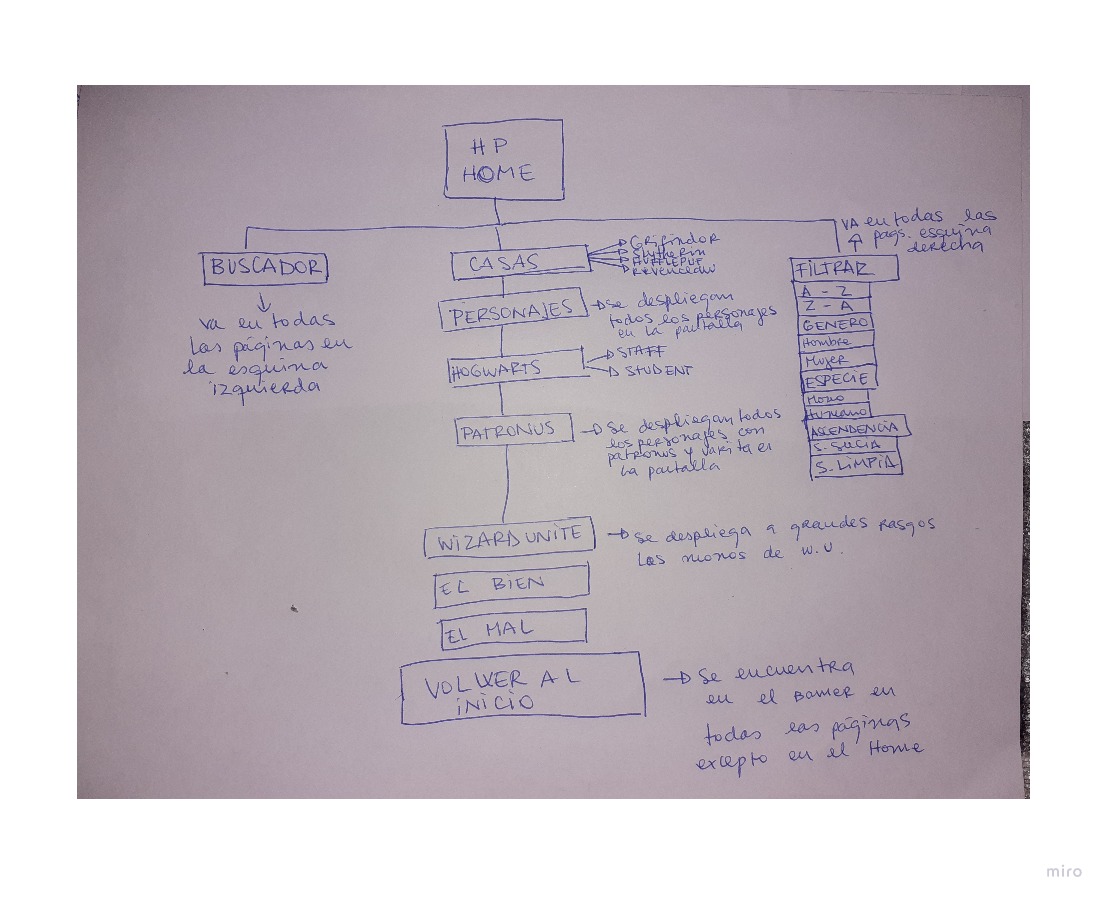 HP
HOME
BUSCADOR
va en todas
las páginas en
la esquina
izquierda
CASAS
GRifindor
Slytherin
HUFFLEPUF
Revenclaw
PERSONAJES
se despliegan
todos los personajes
en la pantalla
HOGWARTS
STAFF
STUDENT
PATRONUS
Se despliegan todos
los personajes con
patronus y varita en
la pantalla
WIZARD UNITE
se despliega a grandes rasgos
los monos de W.U.
EL BIEN
EL MAL
VOLVER AL
iNiCiO
Se encuentra
en el Banner en
todas las páginas
excepto en el Home
VA en todas las
pags. esquina
derecha
FiLTRAR
A - Z
Z - A
GENERO
Hombre
Mujer
ESPECIE
Mono
Humano
ASCENDENCIA
S. SUCIA
S. LiMPiA
miro